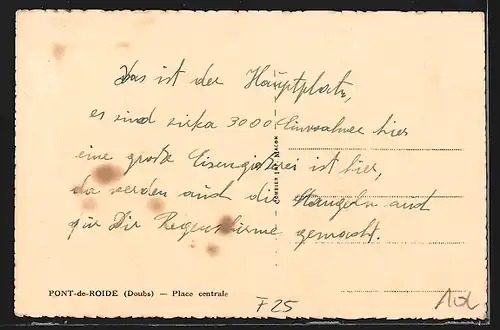 Das ist der Hauptplatz,
es sind zirka 3000 Einwohner hier
eine große Eisengießerei ist hier,
da werden auch die Stangeln auch
für Die Regenschirme gemacht.
COMBIER IMP. MACON
PONT-de-ROIDE (Doubs) — Place centrale
F 25